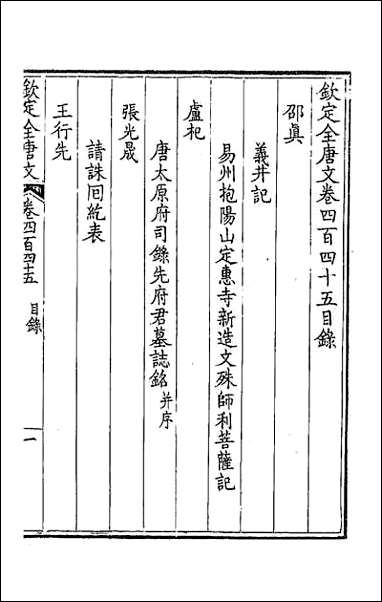 欽定全唐文卷四百四十五目錄
邵真
義井記
易州抱陽山定惠寺新造文殊師利菩薩記
盧杞
唐太原府司錄先府君墓誌銘并序
張光晟
請誅囘紇表
王行先
欽定全唐文 卷四百四十五 目錄 一